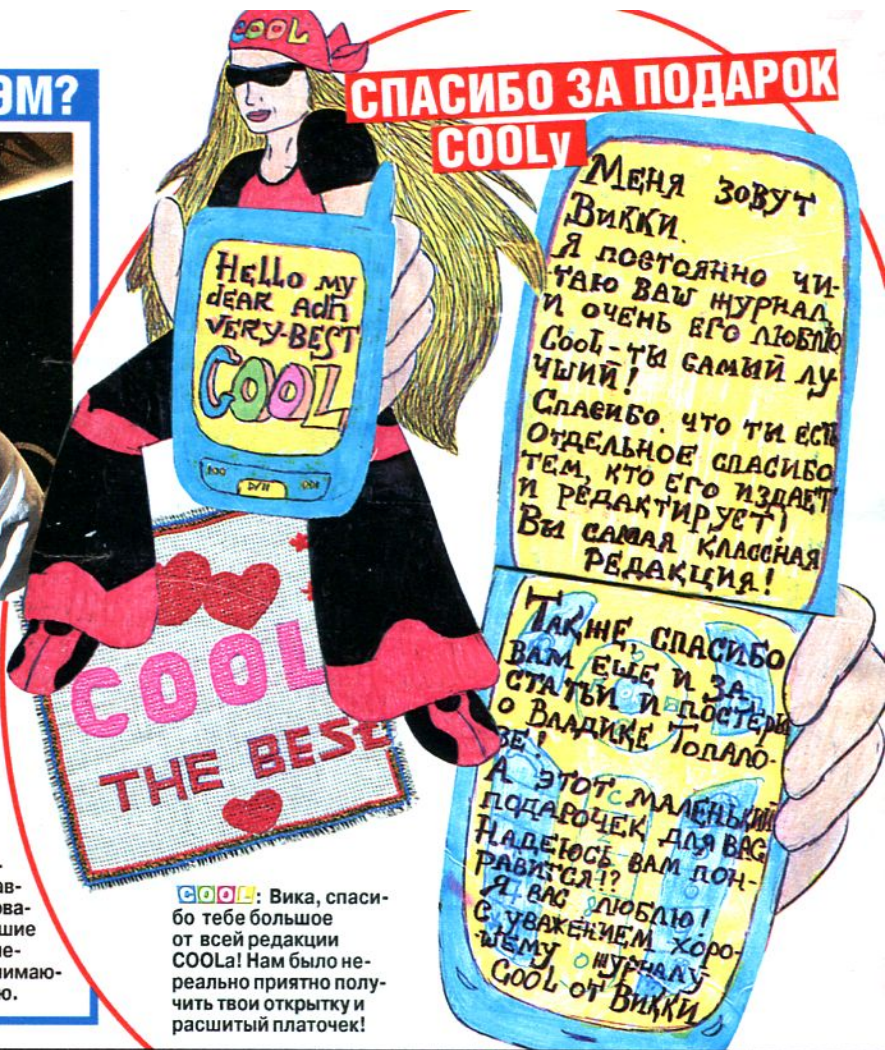 ЭМ?
СПАСИБО ЗА ПОДАРОК
COOLу
COOL
HELLO MY
dEAR Adn
VERY-BEST
COOL
COOL
THE BEST
МЕНЯ ЗОВУТ
ВИККИ.
Я ПОСТОЯННО ЧИ-
ТАЮ ВАШ ЖУРНАЛ
И ОЧЕНЬ ЕГО ЛЮБЛЮ
COOL-ТЫ САМЫЙ ЛУ
ЧШИЙ!
СПАСИБО, ЧТО ТЫ ЕСТЬ
ОТДЕЛЬНОЕ СПАСИБО
ТЕМ, КТО ЕГО ИЗДАЕТ
И РЕДАКТИРУЕТ!
ВЫ САМАЯ КЛАССНАЯ
РЕДАКЦИЯ!
ТАКЖЕ, СПАСИБО
ВАМ ЕЩЕ И ЗА
СТАТЬИ И ПОСТЕРЫ
О ВЛАДИКЕ ТОПАЛО-
ВЕ!
А ЭТОТ МАЛЕНЬКИЙ
ПОДАРОЧЕК ДЛЯ ВАС
НАДЕЮСЬ ВАМ ПОН-
РАВИТСЯ!?
Я ВАС ЛЮБЛЮ!
С УВАЖЕНИЕМ ХОРО-
ШЕМУ ЖУРНАЛУ
COOL ОТ ВИККИ
COOL: Вика, спаси-
бо тебе большое
от всей редакции
COOLа! Нам было не-
реально приятно полу-
чить твои открытку и
расшитый платочек!
-
ав-
ова-
шие
не-
нимаю-
ю.